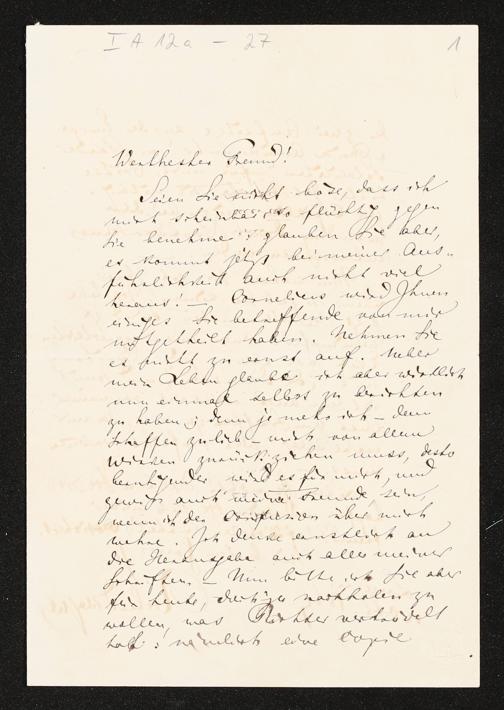 I A 12a - 27
1
Werthester Freund!
Seien Sie nicht böse, dass ich
mich scheinbar so flüchtig gegen
Sie benehme; glauben Sie aber,
es kommt jetzt bei meiner Aus-
führlichkeit auch nicht viel
heraus! — Cornelius wird Ihnen
einiges Sie betreffende von mir
mitgetheilt haben. Nehmen Sie
es nicht zu ernst auf. Ueber
mein Leben glaube ich aber wirklich
nun einmal selbst zu berichten
zu haben; denn je mehr ich — dem
Schaffen zu lieb — mich von allem
Wirken zurückziehen muss, desto
beruhigender wird es für mich, und
gewiss auch meine Freunde, sein,
wenn ich der Confusion über mich
wehre. Ich denke ernstlich an
die Herausgabe auch aller meiner
Schriften. — Nun bitte ich Sie aber
für heute, dort nachholen zu
wollen, was Richter vertrödelt
hat: nämlich eine Copie